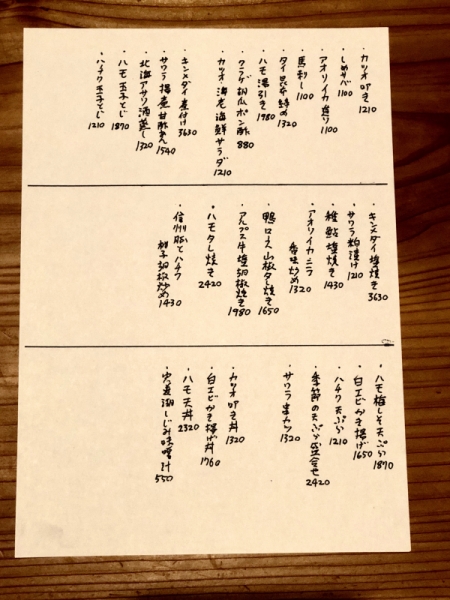 ・カツオ叩き 1210
・しめサバ 1100
・アオリイカ造り 1100
・馬刺し 1100
・タイ昆布〆め 1320
・ハモ湯引き 1980
・クラゲ胡瓜ポン酢 880
・カツオ・海老海鮮サラダ 1210
・キンメダイ煮付け 3630
・サワラ揚煮甘酢あん 1540
・北海アサリ酒蒸し 1320
・ハモ玉子とじ 1870
・ハチク玉子とじ 1210
・キンメダイ塩焼き 3630
・サワラ粕漬け 1210
・稚鮎塩焼き 1430
・アオリイカニラ
香味炒め 1320
・鴨ロース山椒タレ焼き 1650
・アルプス牛塩胡椒焼き 1980
・ハモタレ焼き 2420
・信州豚とハチク
柚子胡椒炒め 1430
・ハモ梅しそ天ぷら 1870
・白エビかき揚げ 1650
・ハチク天ぷら 1210
・季節の天ぷら盛合せ 2420
・サワラ串カツ 1320
・カツオ叩き丼 1320
・白エビかき揚げ丼 1760
・ハモ天丼 2320
・宍道湖しじみ味噌汁 550